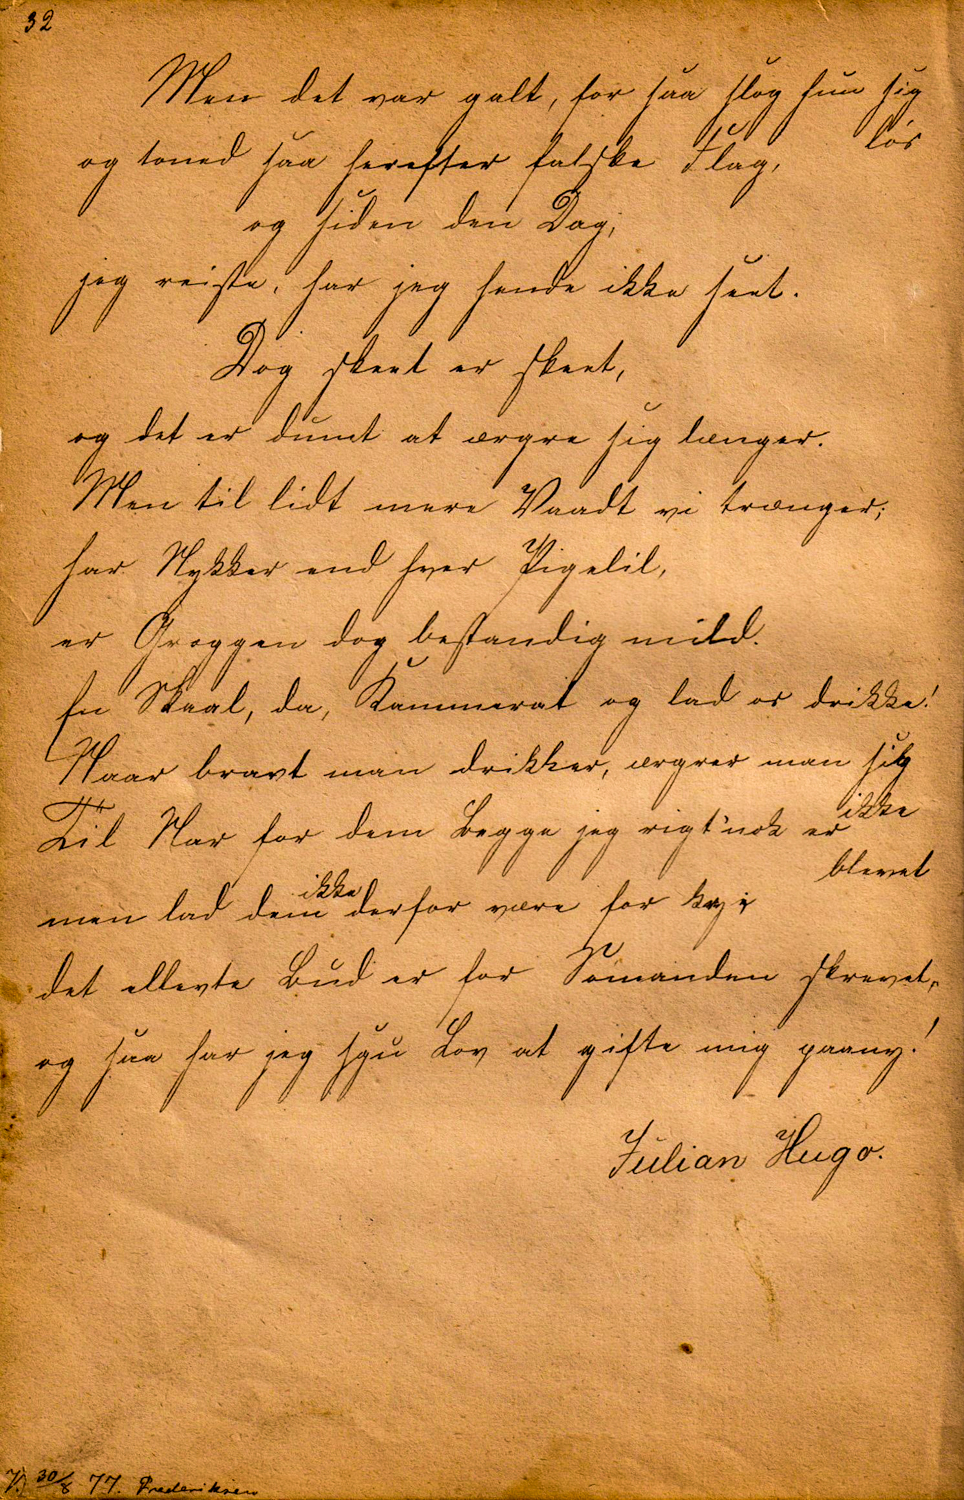 32
Men det var galt, for saa slog hun sig
løs
og toned saa herefter falske Flag,
og siden den Dag,
jeg reiste, har jeg hende ikke seet.
Dog skeet er skeet,
og det er dumt at ærgre sig længer.
Men til lidt mere Vaadt vi trænger;
har Nykker end hver Pigelil,
er Groggen dog bestandig mild.
En Skaal, da, Kammerat og lad os drikke!
Naar bravt man drikker, ærgrer man sig
ikke
Til Nar for dem Begge jeg rigt'nok er
blevet
men lad dem ikke derfor være for kry;
det ellevte Bud er for Sømanden skrevet,
og saa har jeg sgu Lov at gifte mig paany!
Julian Hugo.
30/8 77. Frederiksen